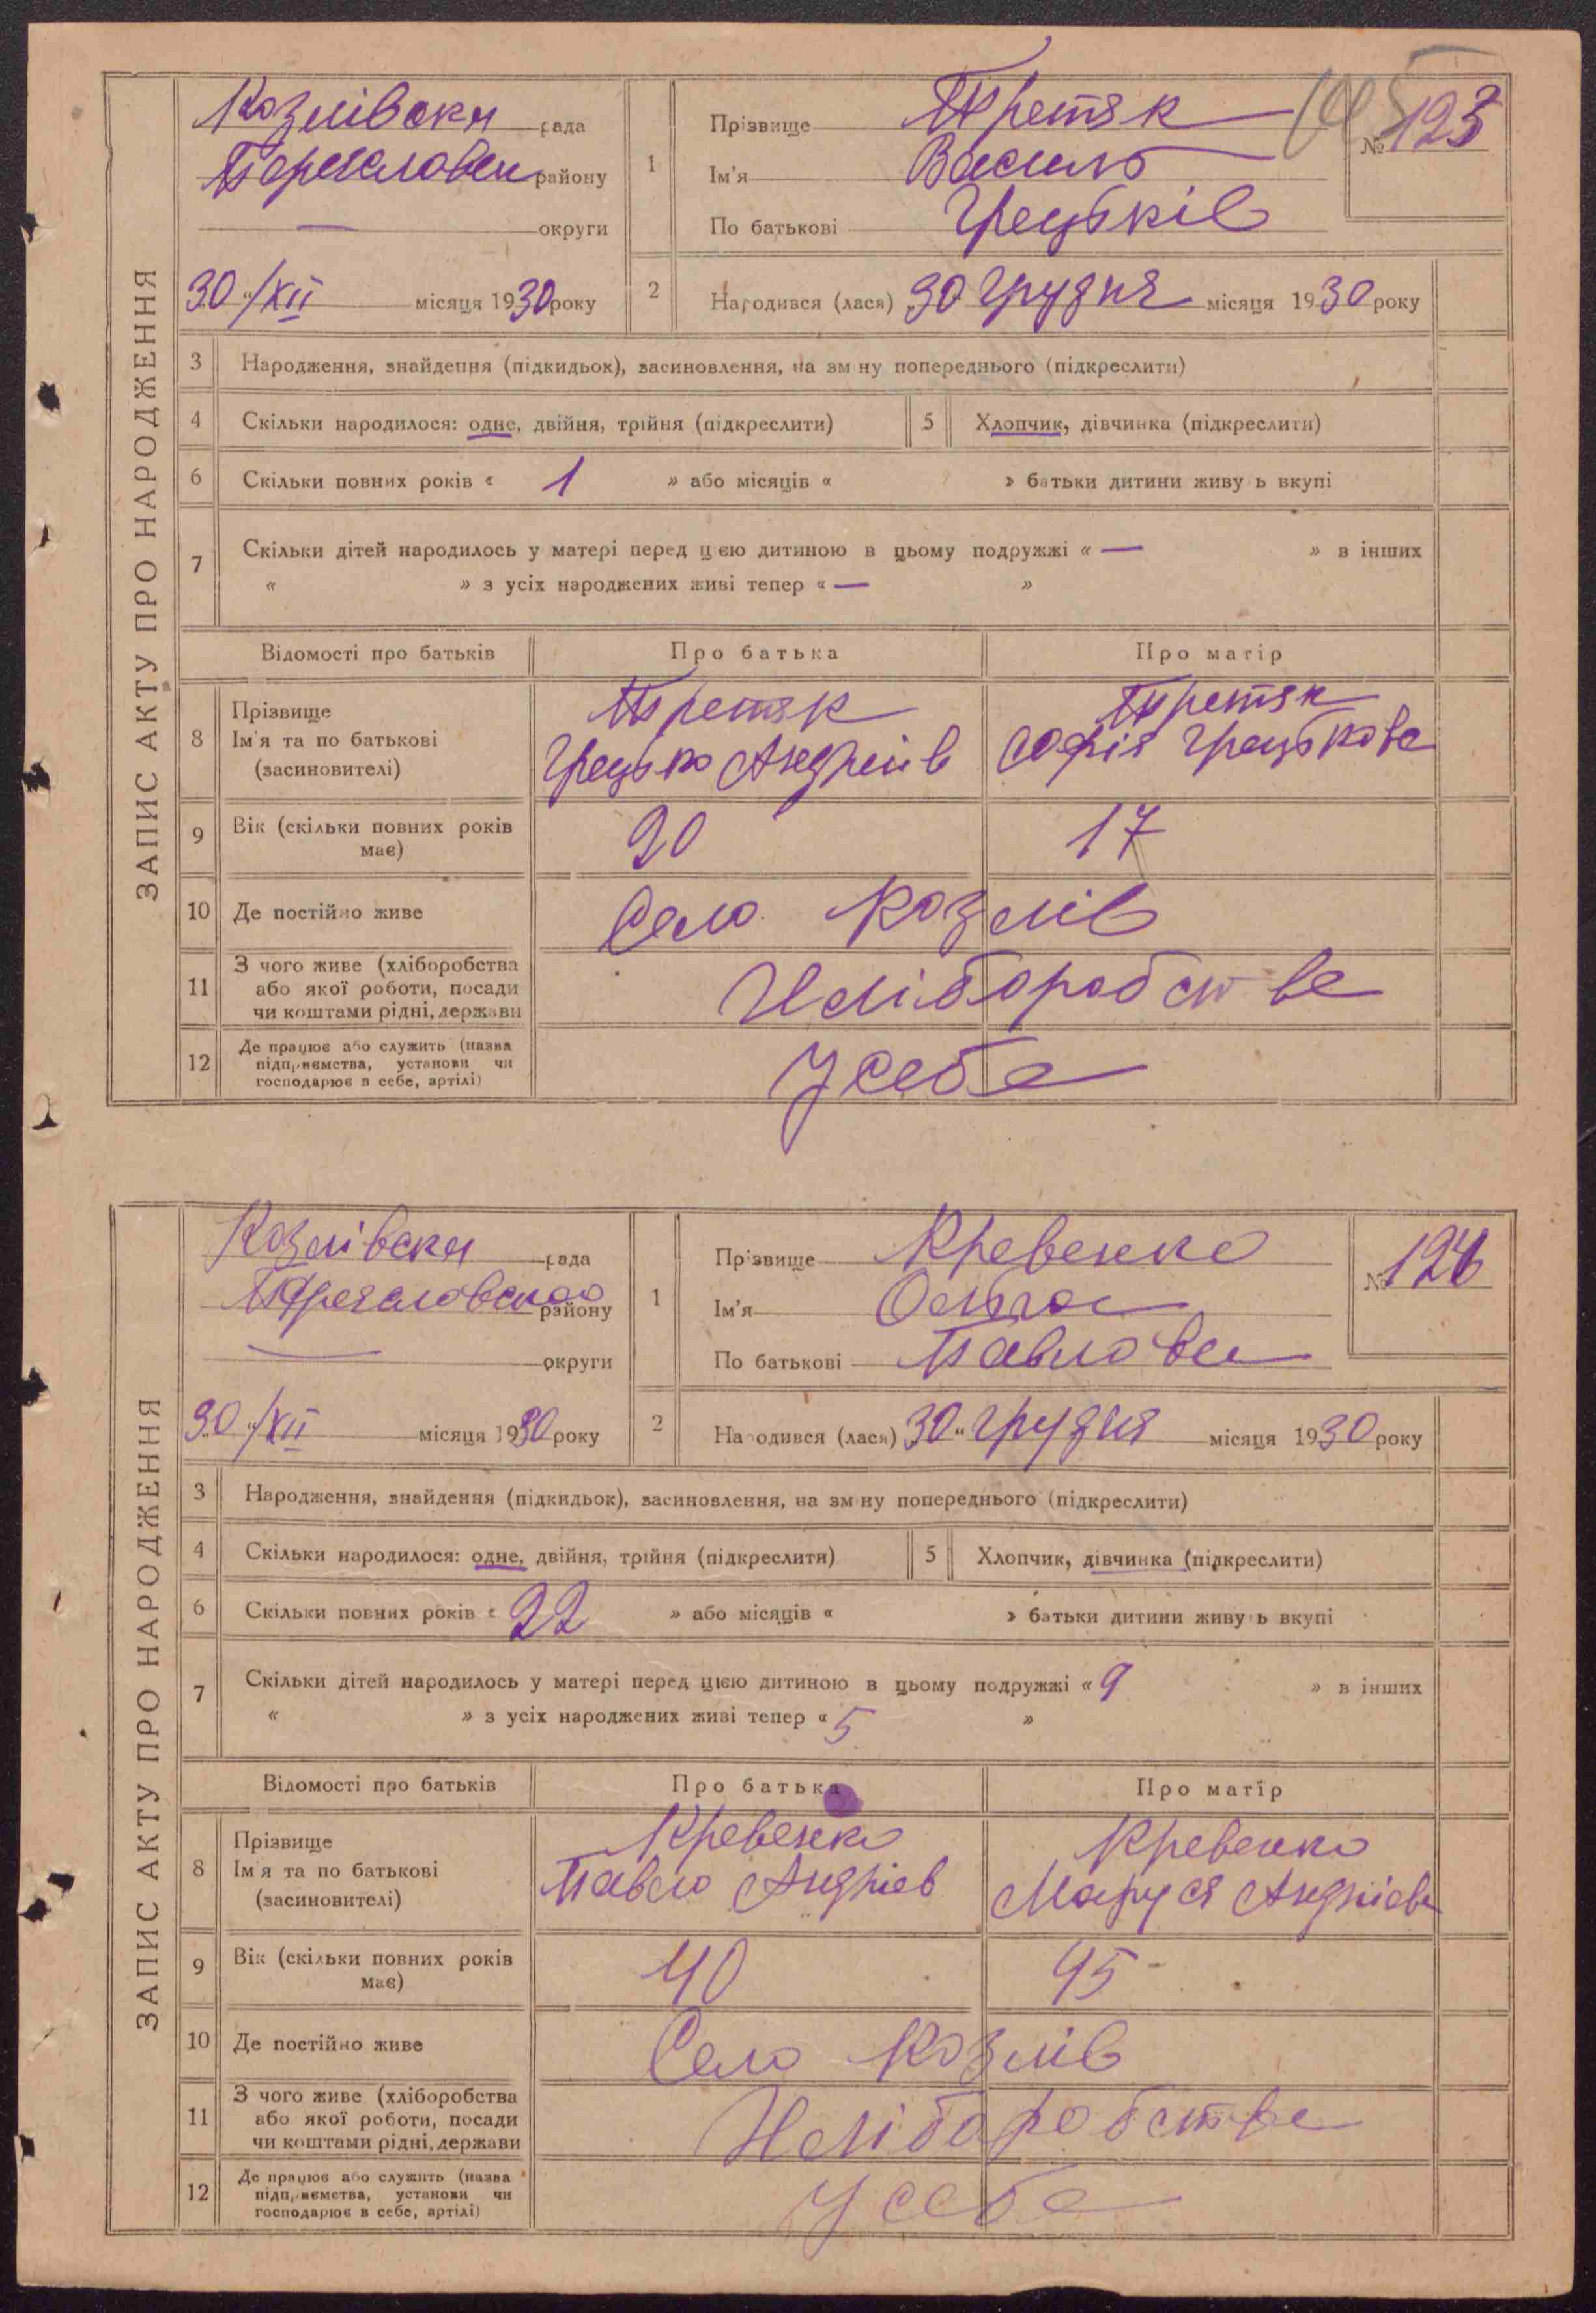 ЗАПИС АКТУ ПРО НАРОДЖЕННЯ
Козлівська рада
району
округи
30 "/XII місяця 1930 року
1
Прізвище Третяк
Ім'я Василь
По батькові Грецьків
№ 123
2
Народився (лася) 30 грудня місяця 1930 року
3 Народження, знайдення (підкидьок), засиновлення, на зміну попереднього (підкреслити)
4 Скільки народилося: одне, двійня, трійня (підкреслити) 5 Хлопчик, дівчинка (підкреслити)
6 Скільки повних років « 1 » або місяців « » батьки дитини живуть вкупі
7 Скільки дітей народилось у матері перед цією дитиною в цьому подружжі « — » в інших
« » з усіх народжених живі тепер « — »
Відомості про батьків Про батька Про матір
8 Прізвище Ім'я та по батькові (засиновителі)
Третяк Третяк
Грецько Андріїв Софія Грецькова
9 Вік (скільки повних років має) 20 17
10 Де постійно живе Село Козлів
11 З чого живе (хліборобства або якої роботи, посади чи коштами рідні, держави Хліборобства
12 Де працює або служить (назва підприємства, установи чи господарює в себе, артілі) У себе
ЗАПИС АКТУ ПРО НАРОДЖЕННЯ
Козлівська рада
району
округи
30 "/XII місяця 1930 року
1
Прізвище Кревенко
Ім'я Ольга
По батькові Павлова
№
2
Народився (лася) 30 " грудня місяця 1930 року
3 Народження, знайдення (підкидьок), засиновлення, на зміну попереднього (підкреслити)
4 Скільки народилося: одне, двійня, трійня (підкреслити) 5 Хлопчик, дівчинка (підкреслити)
6 Скільки повних років « 22 » або місяців « » батьки дитини живуть вкупі
7 Скільки дітей народилось у матері перед цією дитиною в цьому подружжі « 9 » в інших
« » з усіх народжених живі тепер « 5 »
Відомості про батьків Про батька Про матір
8 Прізвище Ім'я та по батькові (засиновителі)
Кревенко Кревенко
Павло Андріев Маруся Андріева
9 Вік (скільки повних років має) 40 45
10 Де постійно живе Село Козлів
11 З чого живе (хліборобства або якої роботи, посади чи коштами рідні, держави Хліборобства
12 Де працює або служить (назва підприємства, установи чи господарює в себе, артілі) У себе